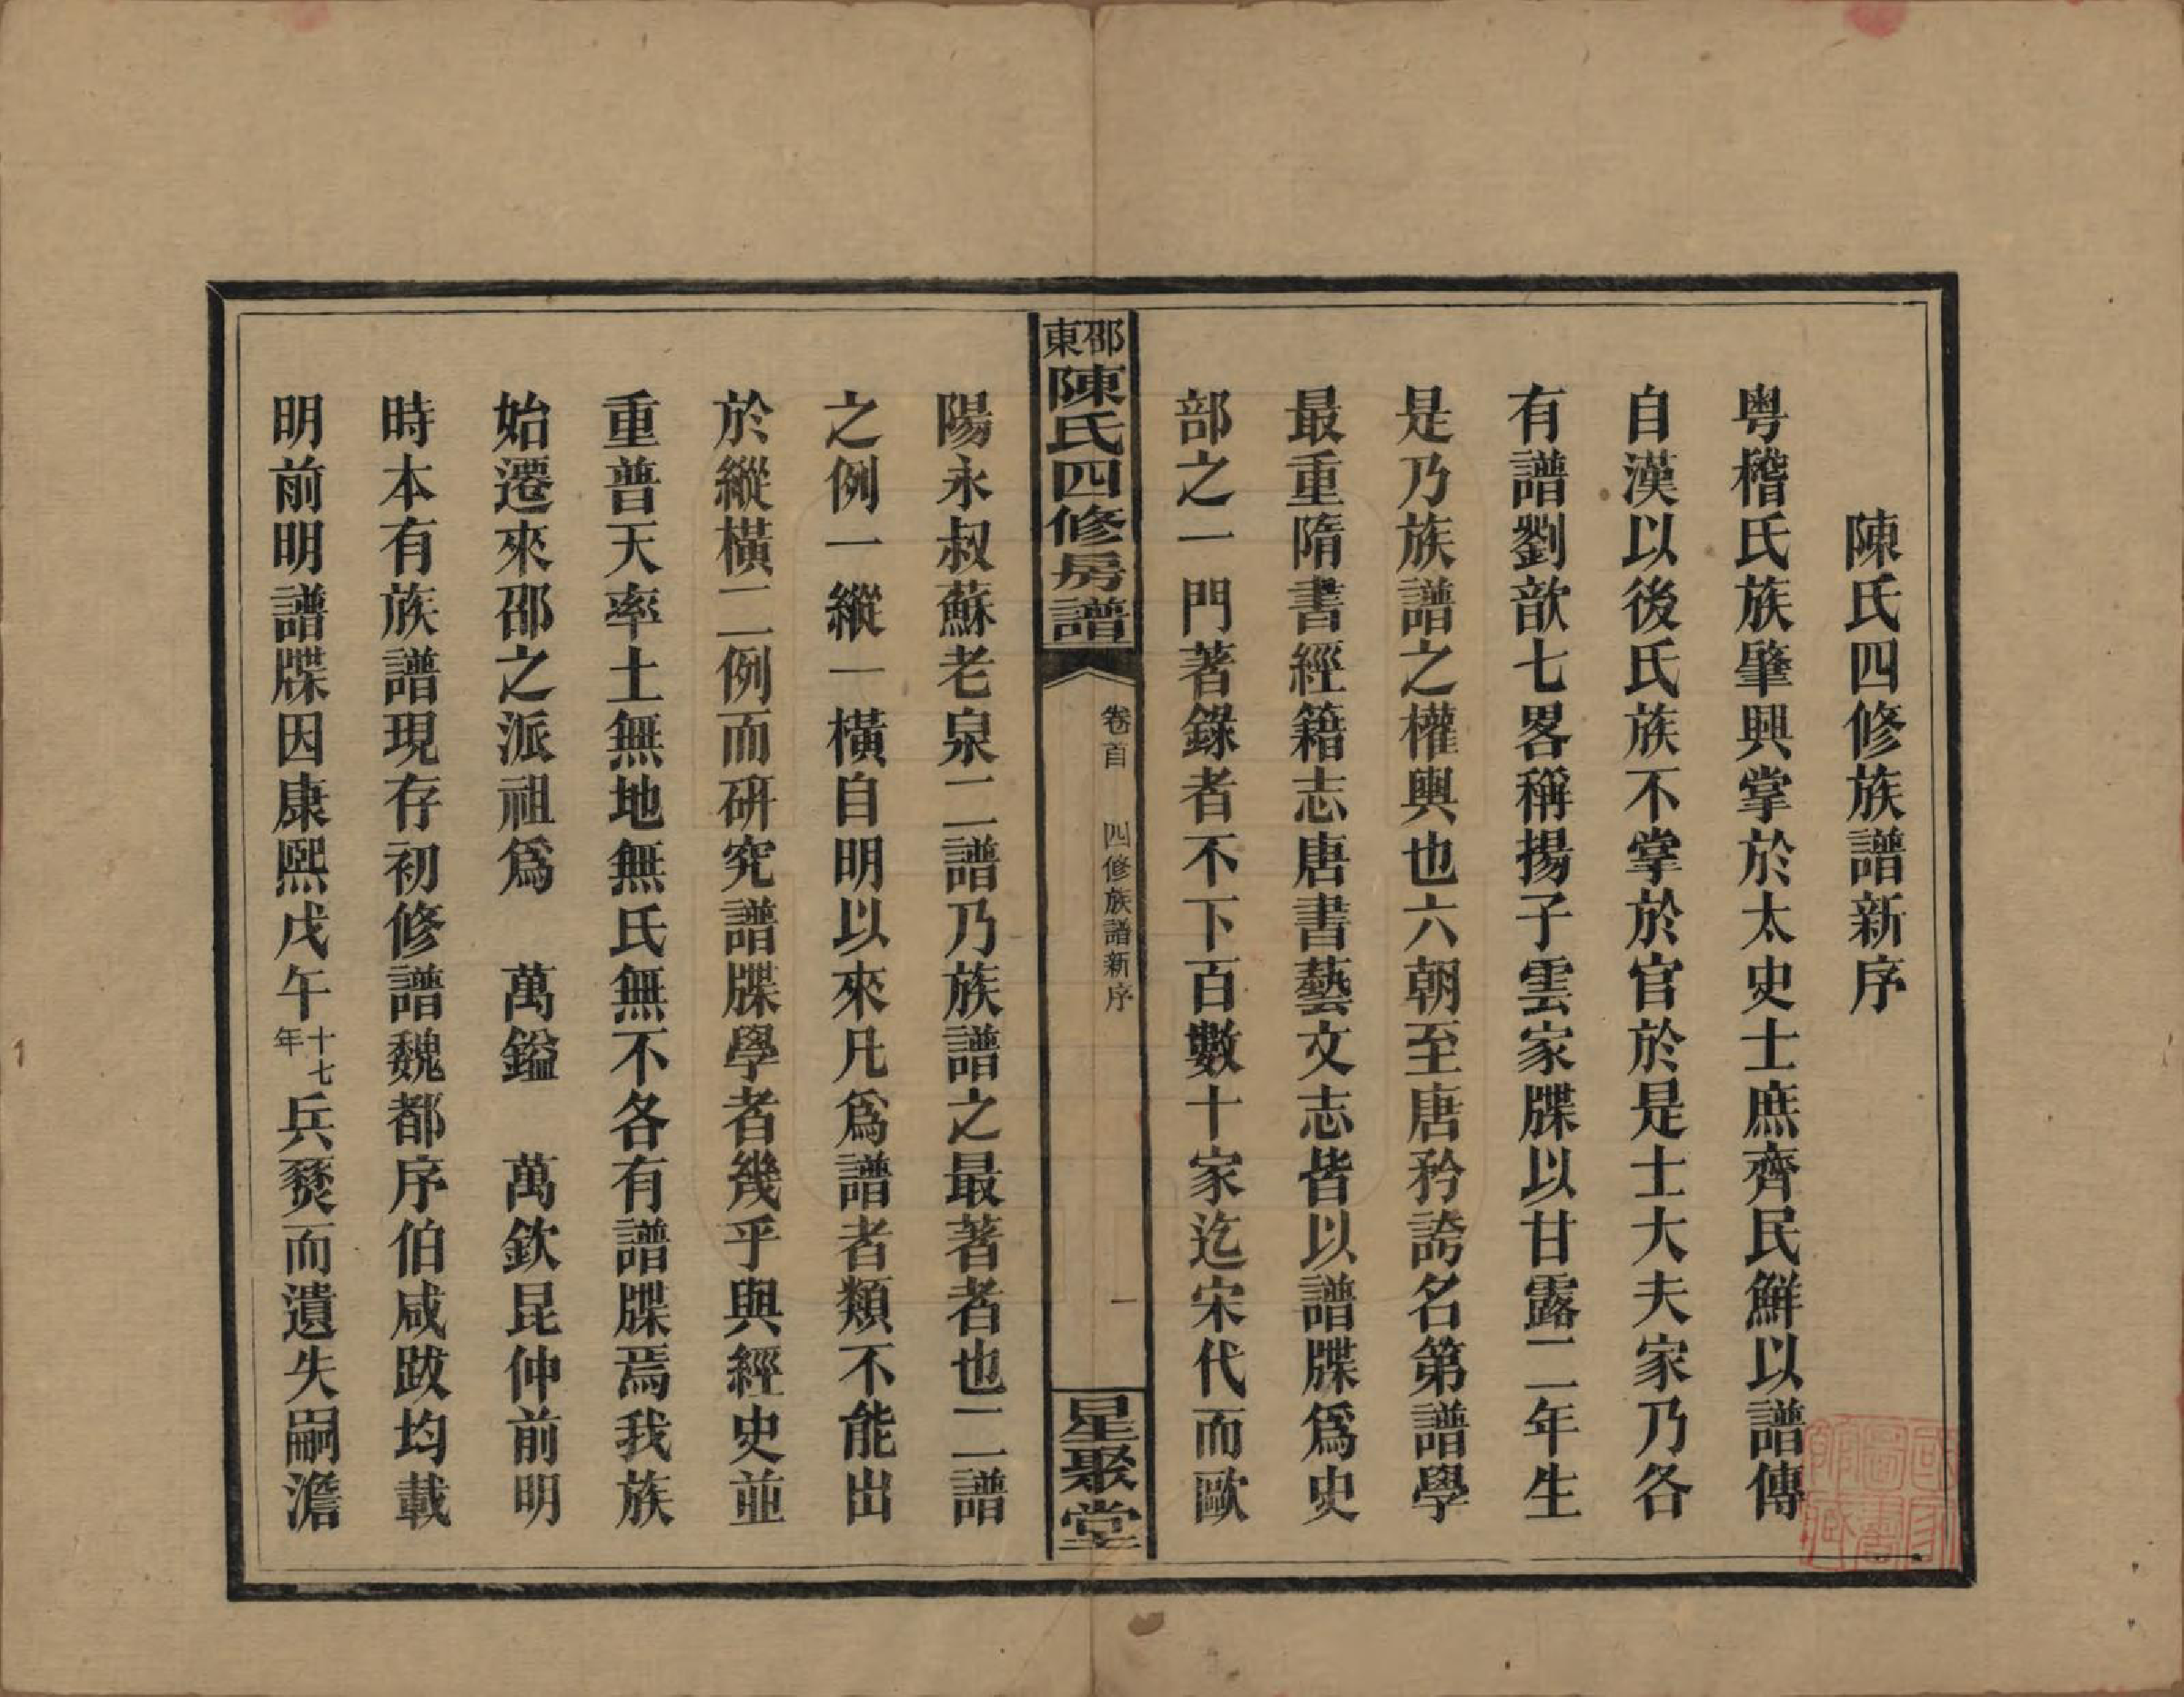 陳氏四修族譜新序
粤稽氏族肇興掌於太史士庶齊民鮮以譜傳
自漢以後氏族不掌於官於是士大夫家乃各
有譜劉歆七畧稱揚子雲家牒以甘露二年生
是乃族譜之權輿也六朝至唐矜誇名第譜學
最重隋書經籍志唐書藝文志皆以譜牒爲史
部之一門著錄者不下百數十家迄宋代而歐
邵東陳氏四修房譜
卷首 四修族譜新序
一
星聚堂
陽永叔蘇老泉二譜乃族譜之最著者也二譜
之例一縱一橫自明以來凡爲譜者類不能出
於縱橫二例而研究譜牒學者幾乎與經史並
重普天率土無地無氏無不各有譜牒焉我族
始遷來邵之派祖爲 萬鎰 萬欽昆仲前明
時本有族譜現存初修譜魏都序伯咸跋均載
明前明譜牒因康熙戊午十七年兵燹而遺失嗣澹
國家圖書館藏